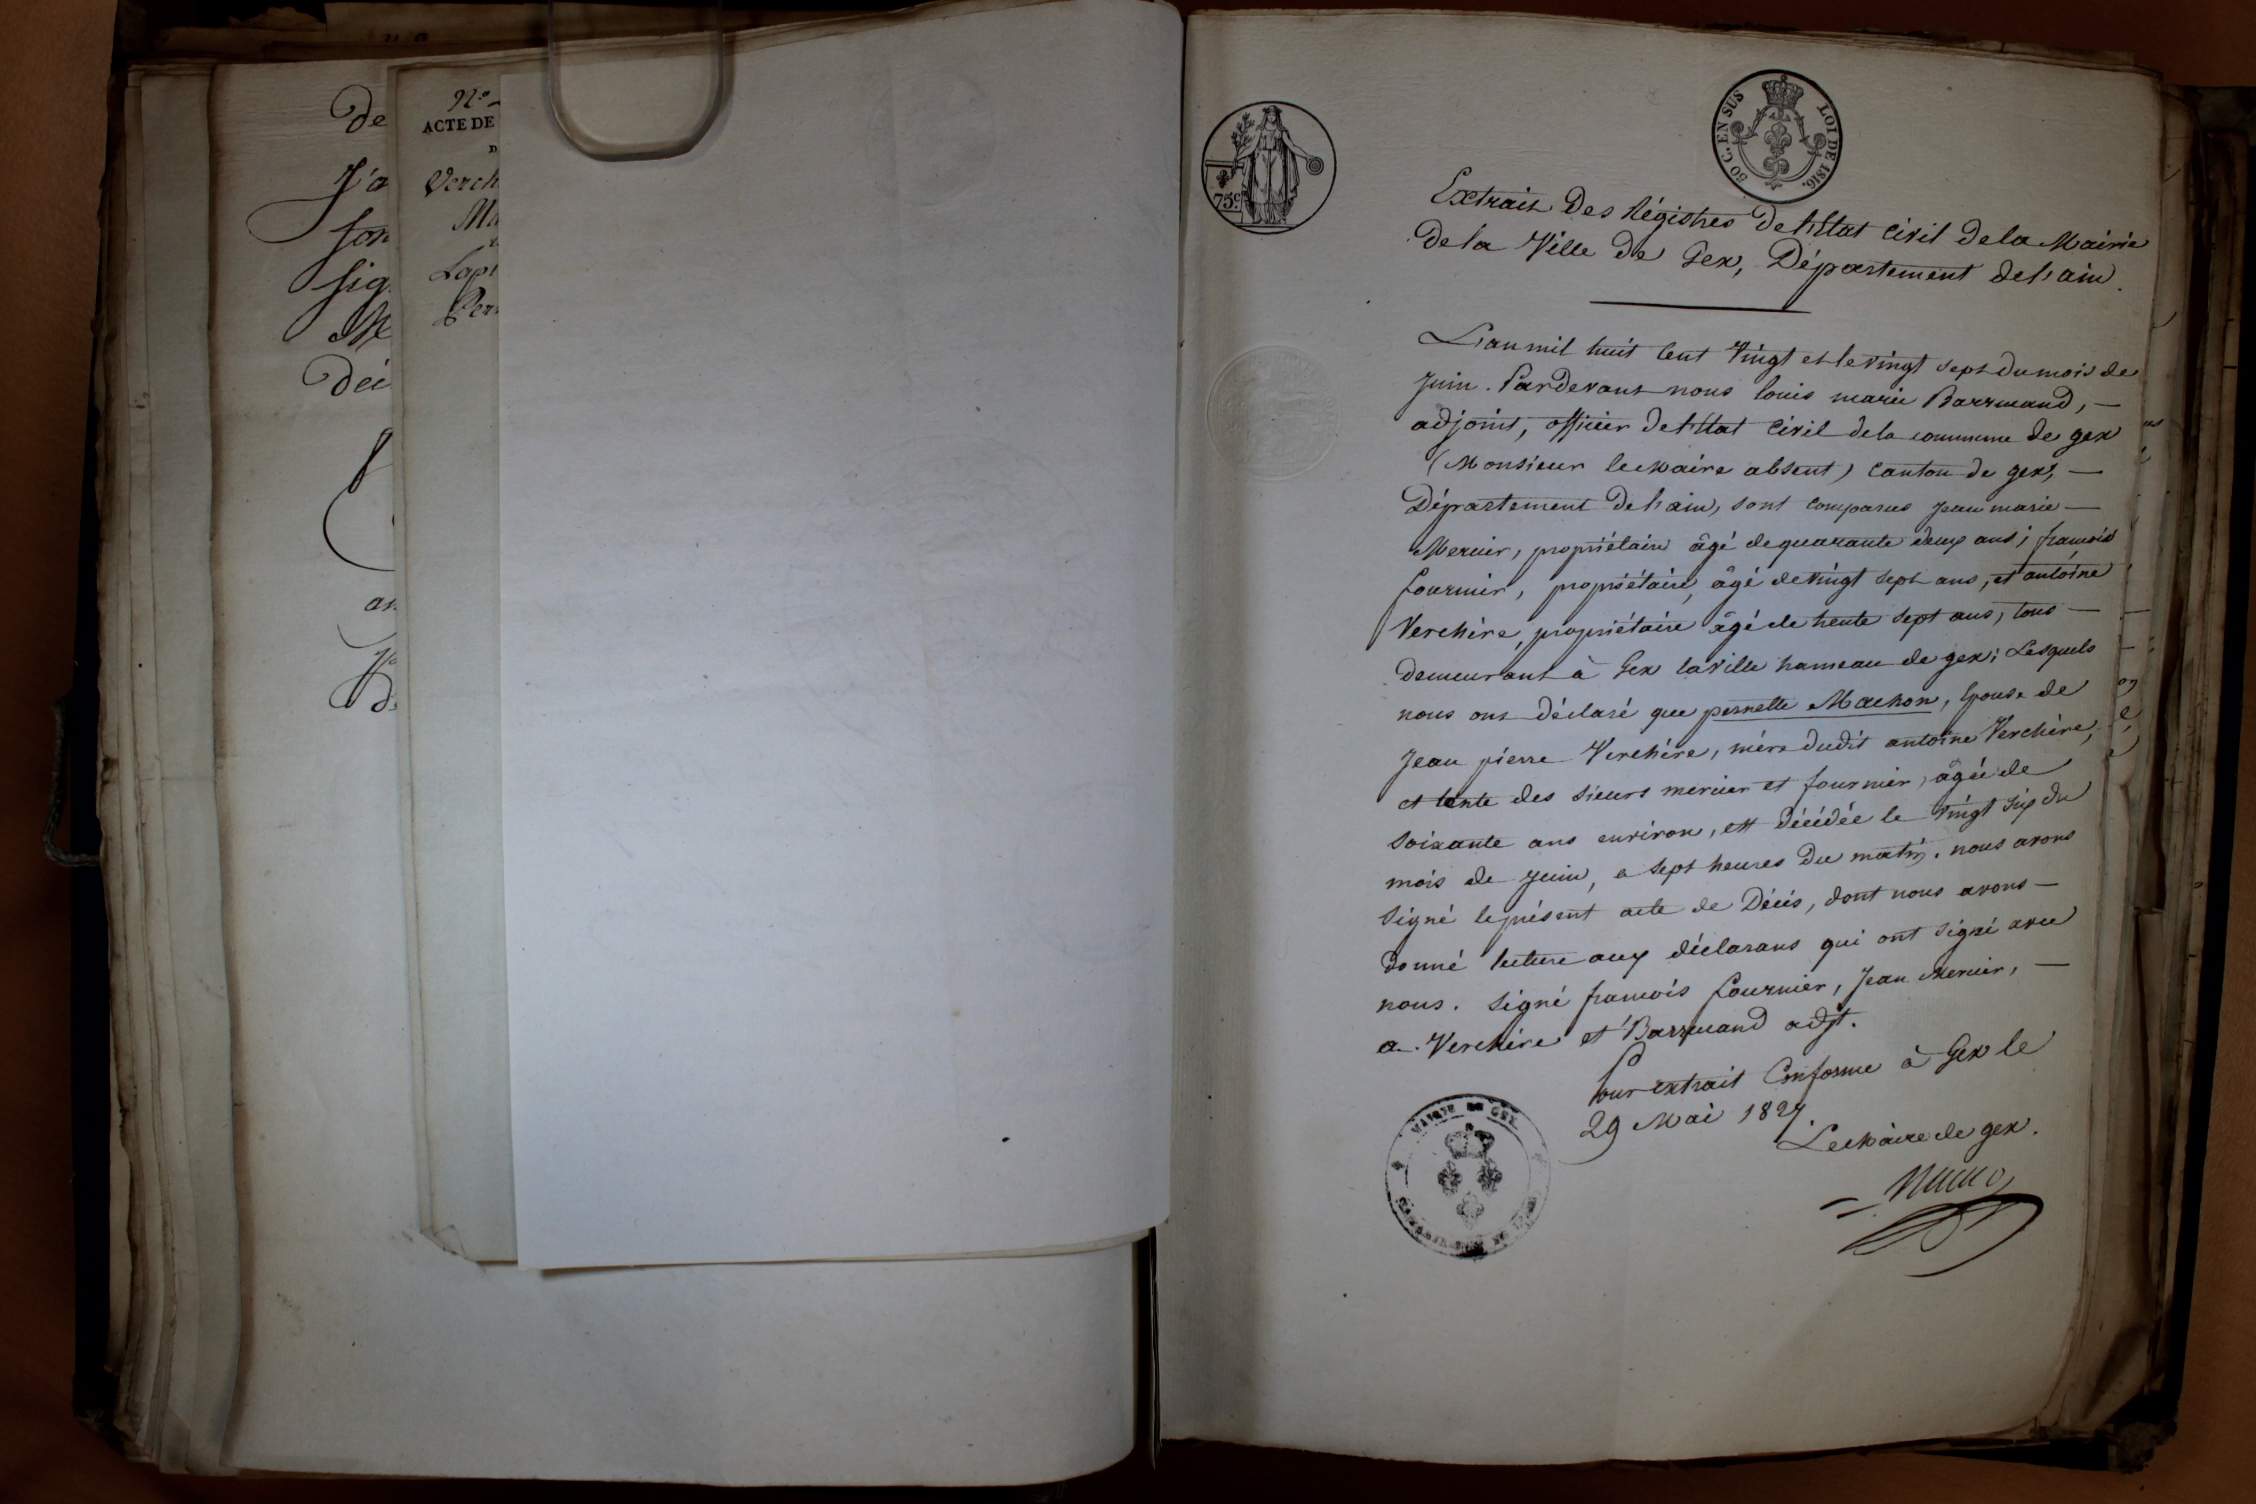 De
J'a
son
sig
Me
Déc
an
N.o
ACTE DE
D
Verch
Ma
Lapi
Perr
75.c
50 C. EN SUS
LOI DE 1816.
Extrait Des Régistres De l'Etat Civil de la Mairie
De la Ville De Gex, Département de l'ain.
L'an mil huit Cent Vingt et le vingt sept du mois de
Juin. Pardevant nous louis marie Barrmand, —
adjoint, officier de l'Etat Civil de la commune de gex
(Monsieur le Maire absent) Canton de gex, —
Département De l'ain, sont comparus Jean marie —
Mercier, propriétaire âgé de quarante deux ans; françois
fournier, propriétaire, âgé de vingt sept ans, et antoine
Verchère, propriétaire âgé de trente sept ans, tous —
demeurant à Gex laville hameau de gex; Lesquels
nous ont déclaré que pernette Machon, Epouse de
Jean pierre Verchère, mère dudit antoine Verchère,
et tente des sieurs mercier et fournier, âgée de
soixante ans environ, est Décédée le vingt six du
mois de juin, a sept heures du matin. nous avons
signé le présent acte de Décès, dont nous avons —
donné lecture aux déclarans qui ont signé avec
nous. Signé françois fournier, Jean Mercier, —
a. Verchère et Barrmand adjt.
Pour extrait Conforme à Gex le
29 Mai 1827.
Le Maire de gex.
MAIRIE DE GEX